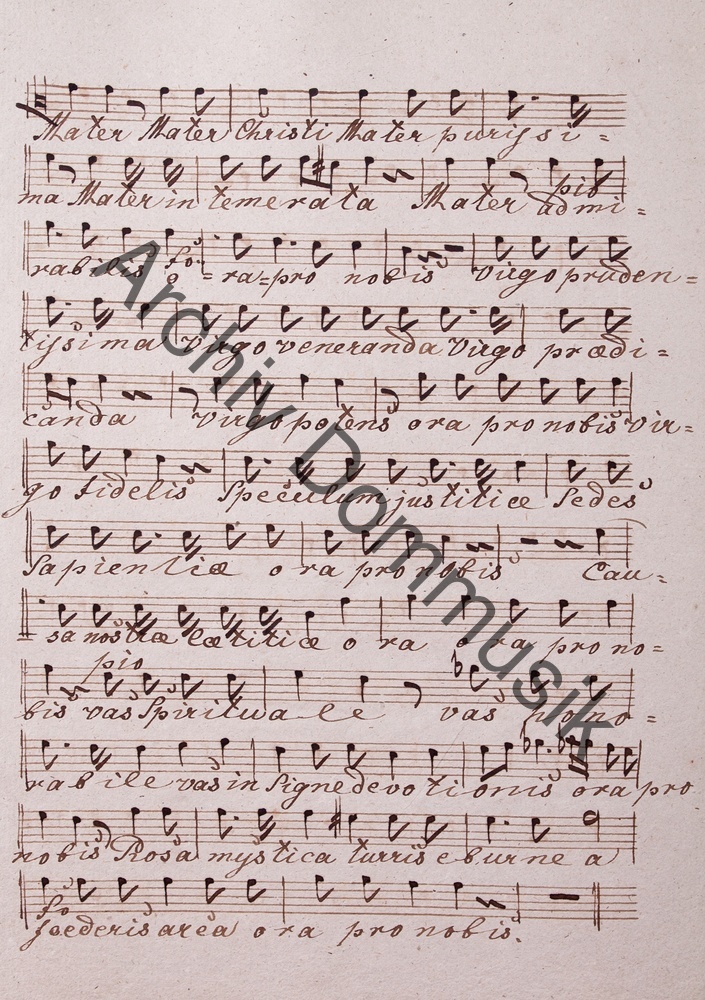 Mater Mater Christi Mater purissi =
ma Mater in temerata Mater admi =
pio
rabilis o = ra = pro nobis Virgo pruden =
fo:
tissima Virgo veneranda Virgo prædi =
canda Virgo potens ora pro nobis Vir =
go fidelis Speculum justitiæ Sedes
Sapientiæ ora pro nobis Cau =
= sa nostræ lætitiæ o ra ora pro no =
pio
bis vas Spirituale vas hono =
rabile vas in Signe devotionis ora pro
nobis Rosa mystica turris eburnea
fo
foederis arca ora pro nobis.
Archiv Dommusik